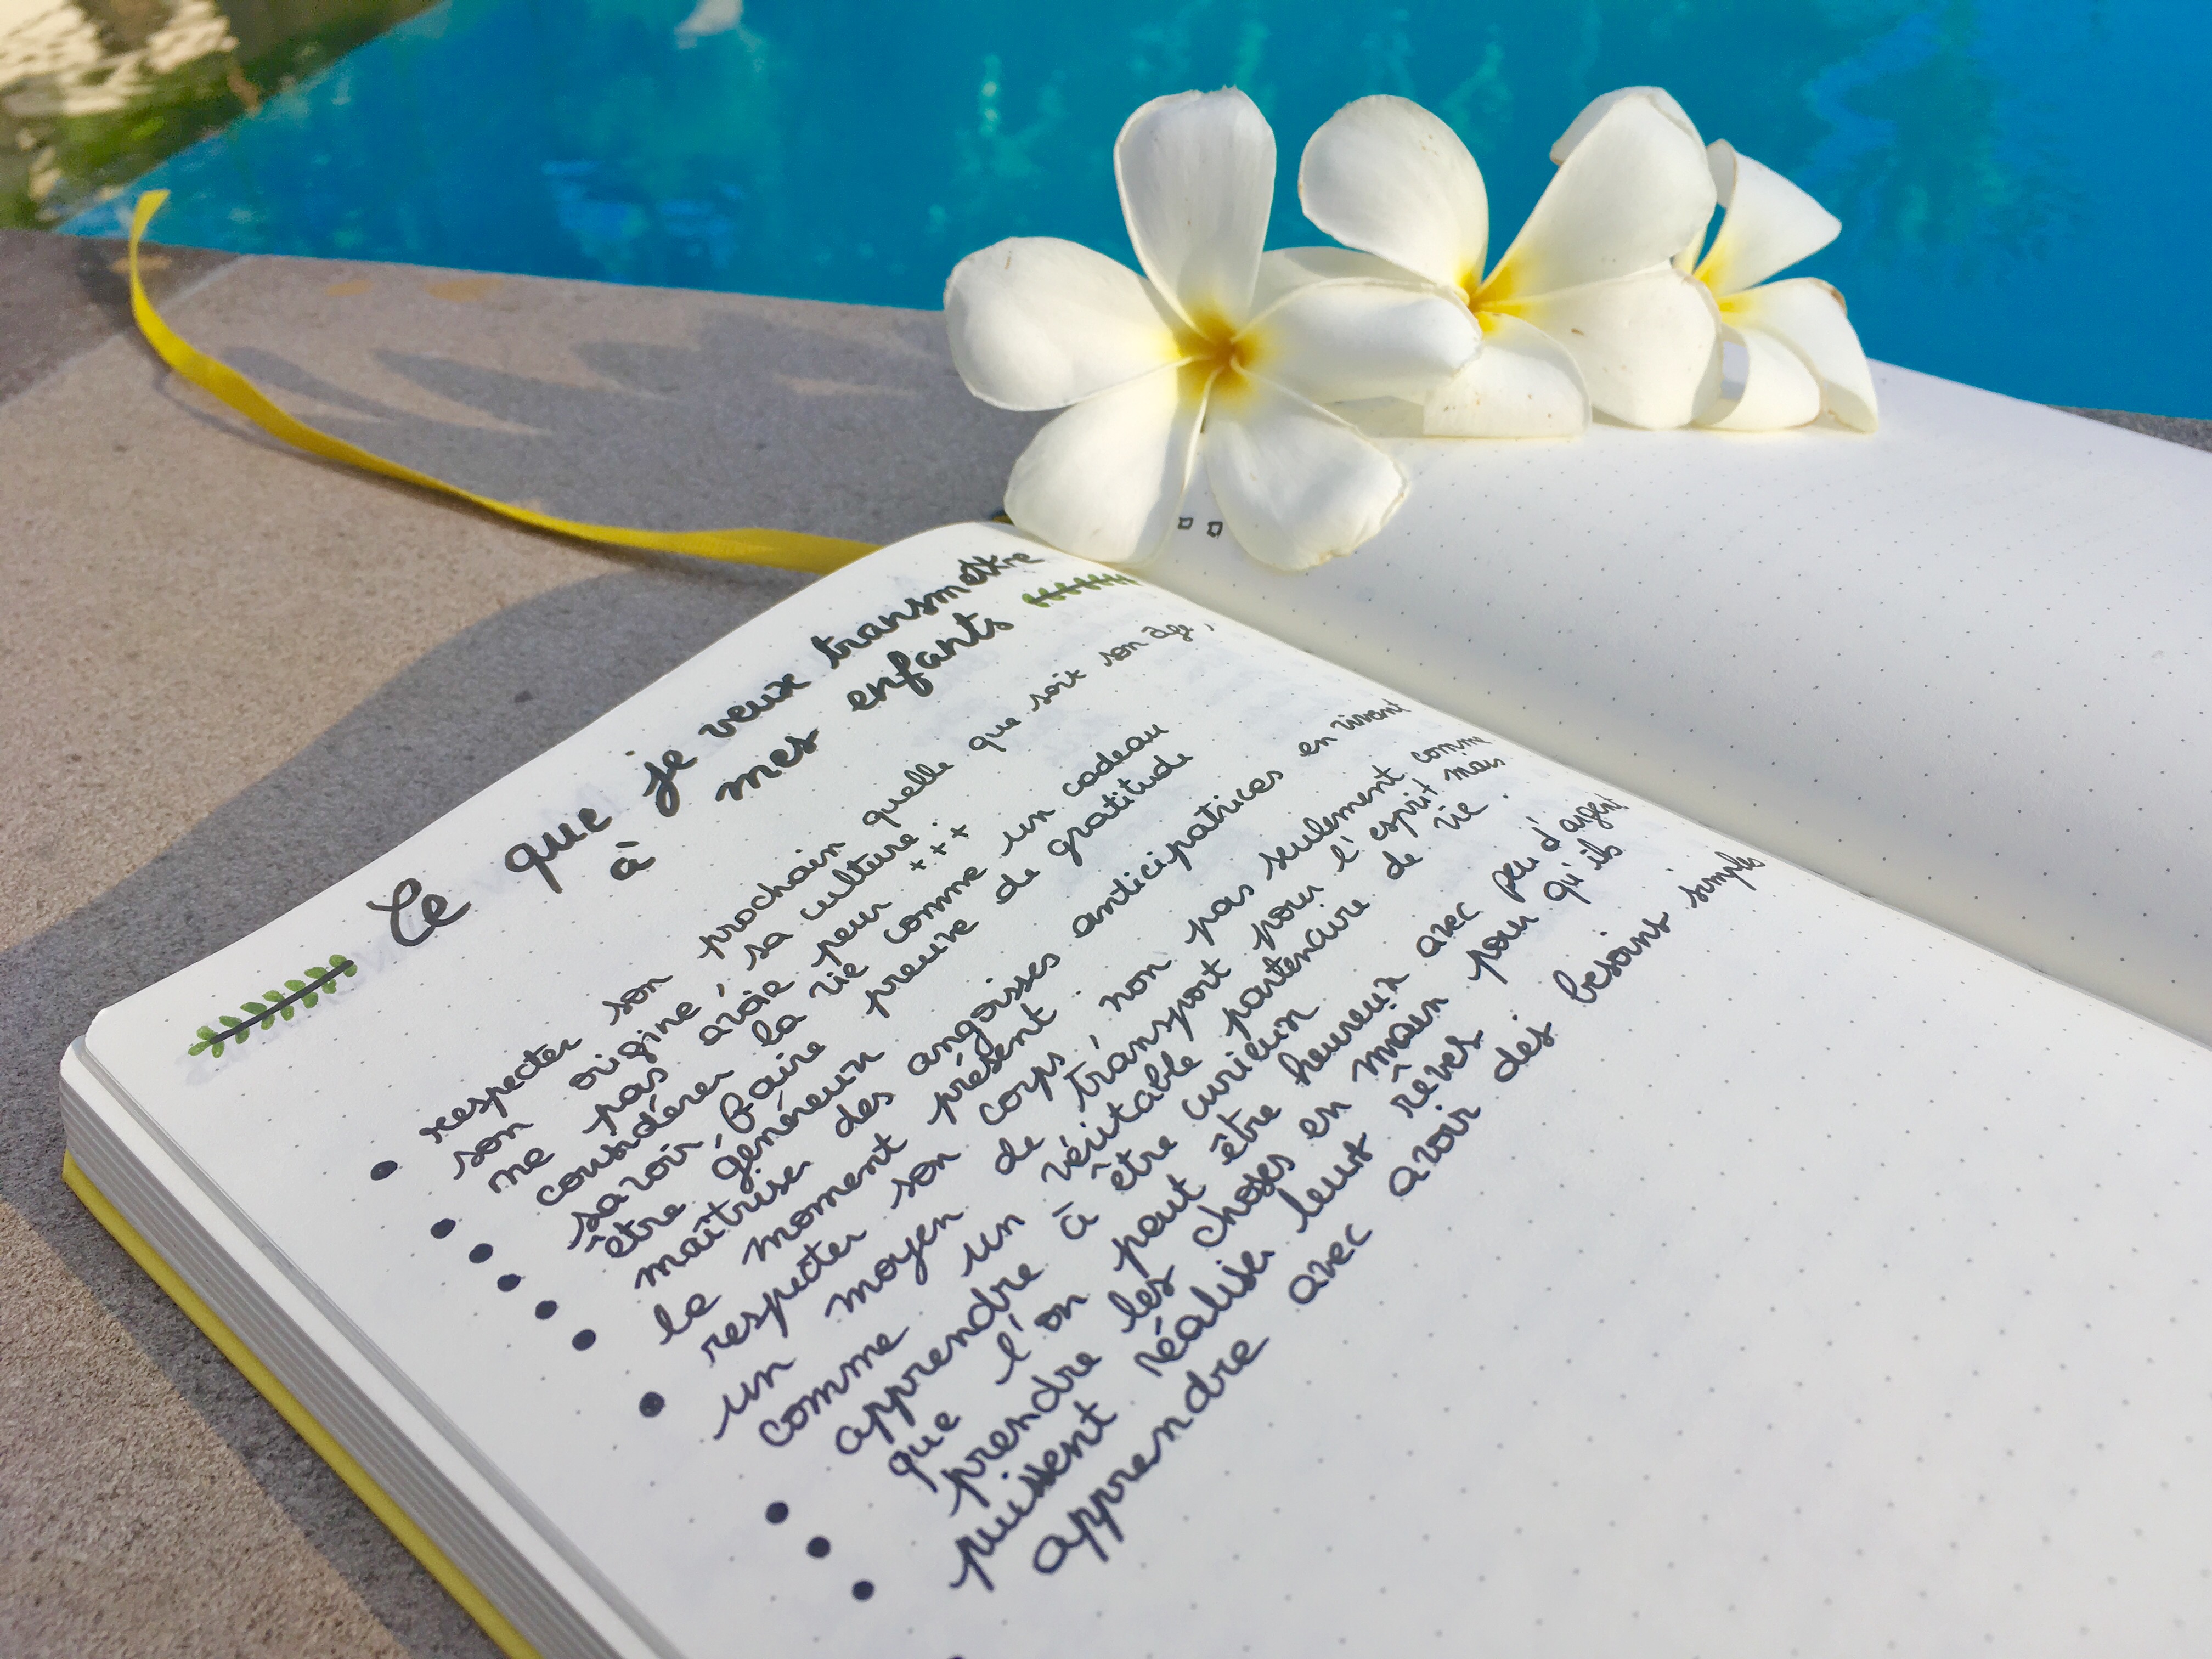 Ce que je veux transmettre
à mes enfants
• respecter son prochain quelle que soit son âge,
son origine, sa culture.
• ne pas avoir peur +++
• considérer la vie comme un cadeau
• savoir faire preuve de gratitude
• être généreux
• maîtriser des angoisses anticipatrices en vivant
le moment présent.
• respecter son corps, non pas seulement comme
un moyen de transport pour l'esprit mais
comme un véritable partenaire de vie.
• apprendre à être curieux
• que l'on peut être heureux avec peu d'argent
• prendre les choses en main pour qu'ils
puissent réaliser leurs rêves
• apprendre avec avoir des besoins simples